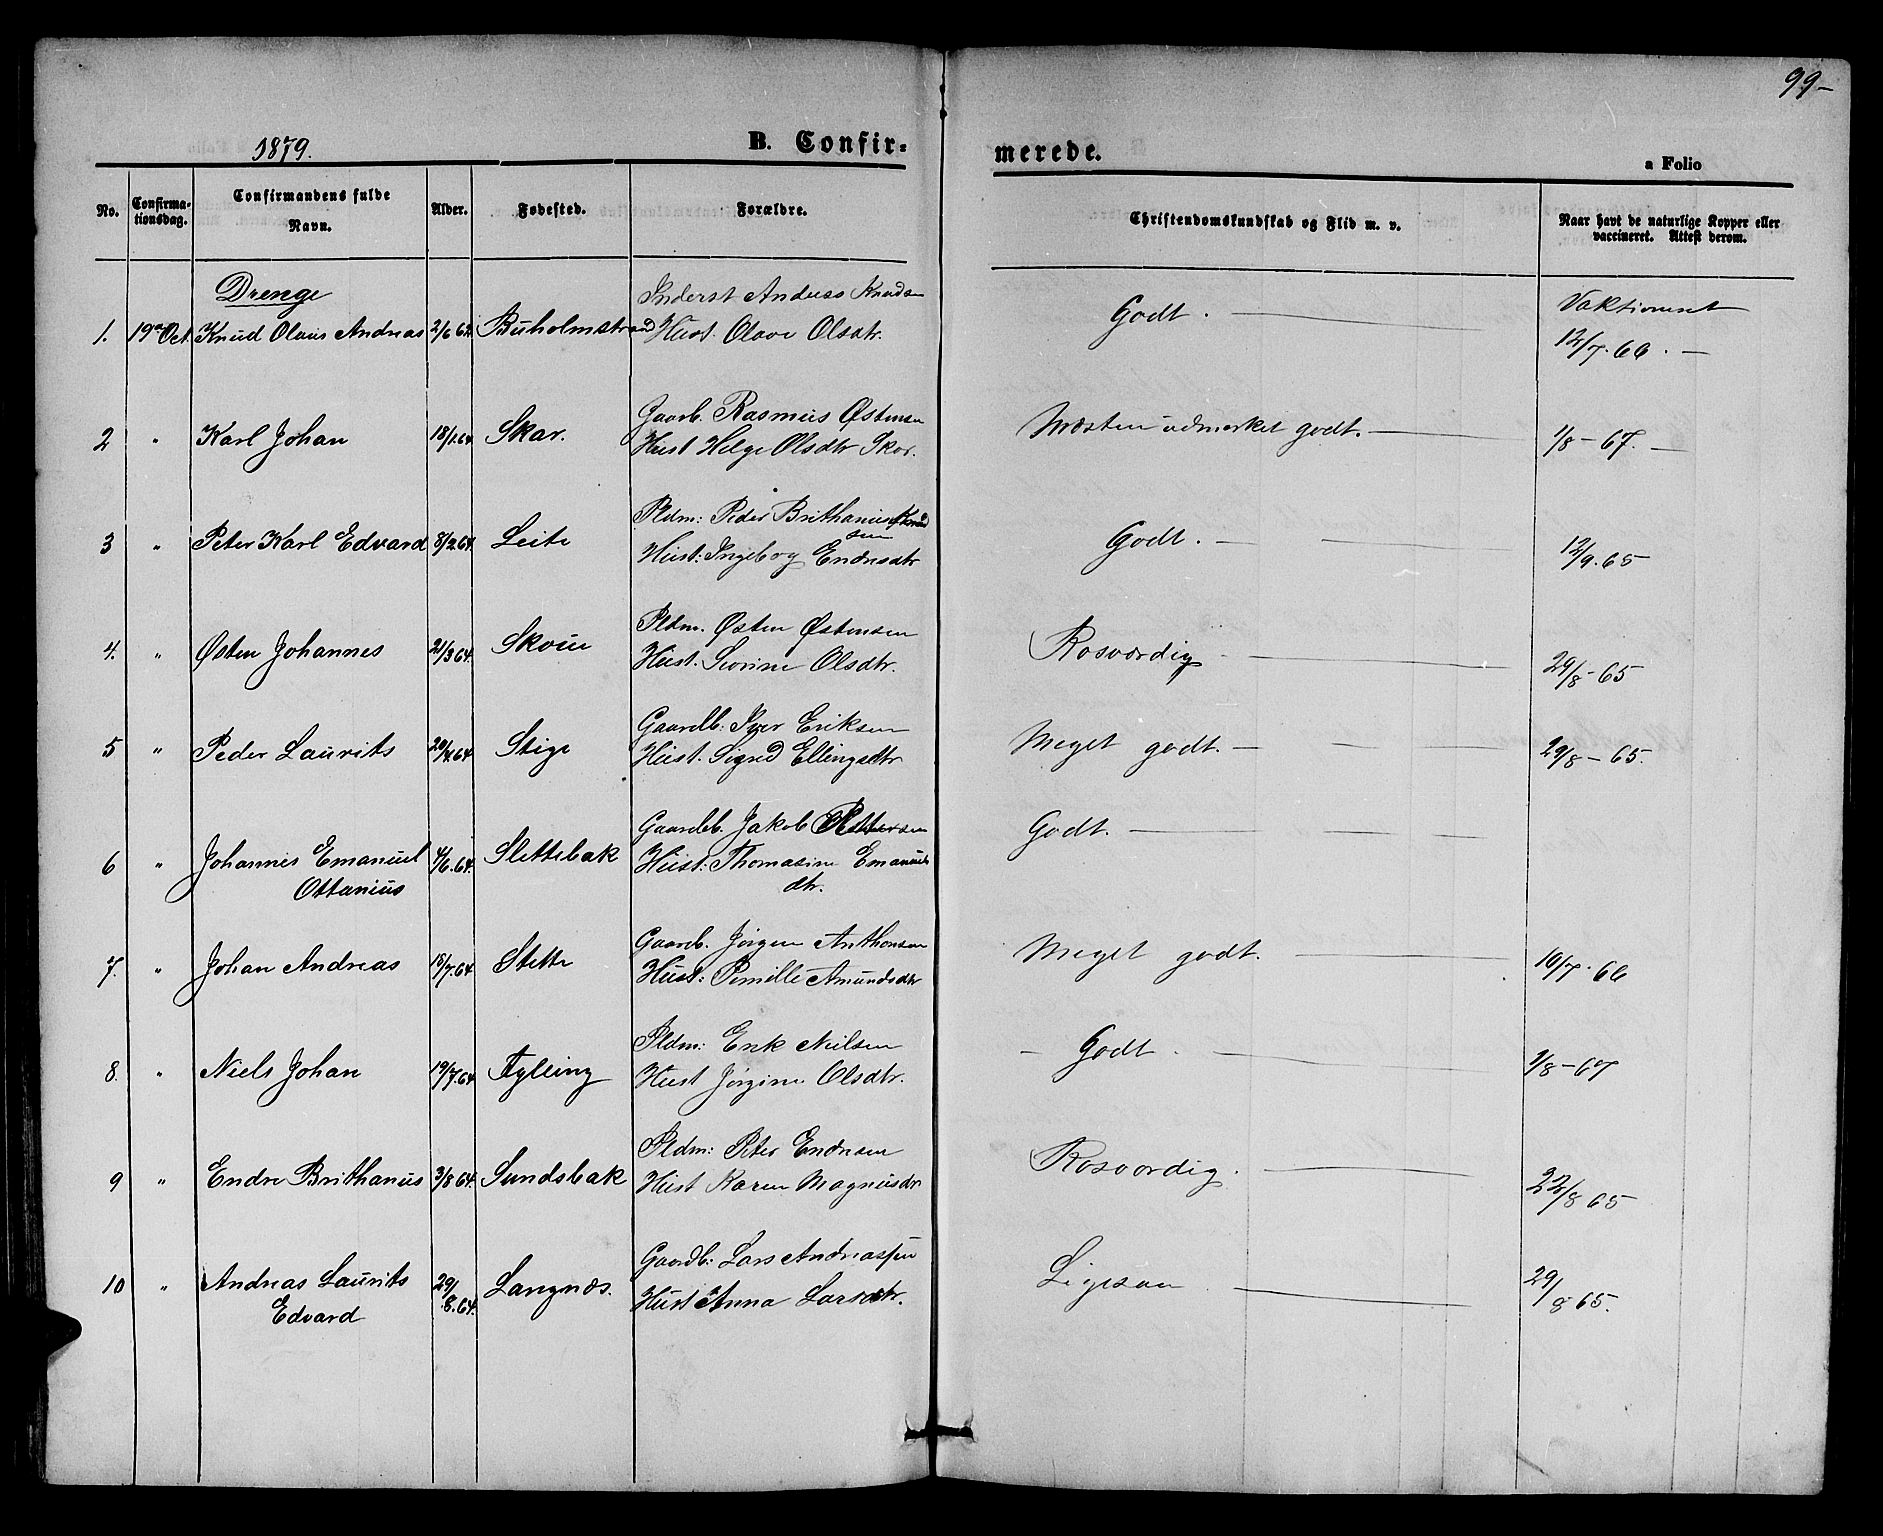 99-
1879.
B. Confir-
merede.
a Folio
No.
Confirma-
tionsdag.
Confirmandens fulde
Navn.
Alder.
Fødested.
Forældre.
Christendomskundskab og Flid m. v.
Naar havt de naturlige Kopper eller
vaccineret. Attest derom.
Drenge
Inderst Andreas Knuds
1. 19de Oct. Knud Olaus Andreas 2/6 62. Buholmstrand Hust. Olave Olsdtr. Godt. Vaktioneret
12/7. 66. -
Gaarb. Rasmus Østensen
2 " Karl Johan 18/1.64 Skar. Hust Helge Olsdtr Skar. Næsten udmerket godt. 1/8 - 67. -
Pldm: Peder Brithanius Knud
sen
3 " Peter Karl Edvard 8/2.64. Leite Hust: Ingeborg Endresdtr Godt. 12/9. 65
Pldm. Østen Østensen
4. " Østen Johannes 21/3 64. Skoue Hust. Severine Olsdtr. Rosværdig 29/8 - 65
Gaardb: Iver Eriksen
5 " Peder Laurits 20/4.64 Stige Hust. Sigrid Ellingsdtr Meget godt. 29/8 - 65.
Gaardb. Jakob Pettersen
6 " Johannes Emanuel 4/6.64. Slettebak Hust: Thomasine Emanuels Godt.
Ottanius dtr.
Gaarb. Jørgen Anthonsen
7. " Johan Andreas 15/7.64 Stette Hust: Pernille Amundsdtr Meget godt. 10/7. 66
Pldm: Erik Nielsen
8. " Niels Johan 19/7.64 Fylling Hust Jørgine Olsdtr. - Godt. 1/8 - 67
Pldm: Peter Endresen
9 " Endre Brithanus 3/8 64. Sundsbak Hust Karen Magnusdr Rosværdig. 22/8 65
Gaardb: Lars Andreassen
10 " Andreas Laurits 29/8.64. Langnæs. Hust Anna Larsdtr. Ligesaa 29/8 65.
Edvard